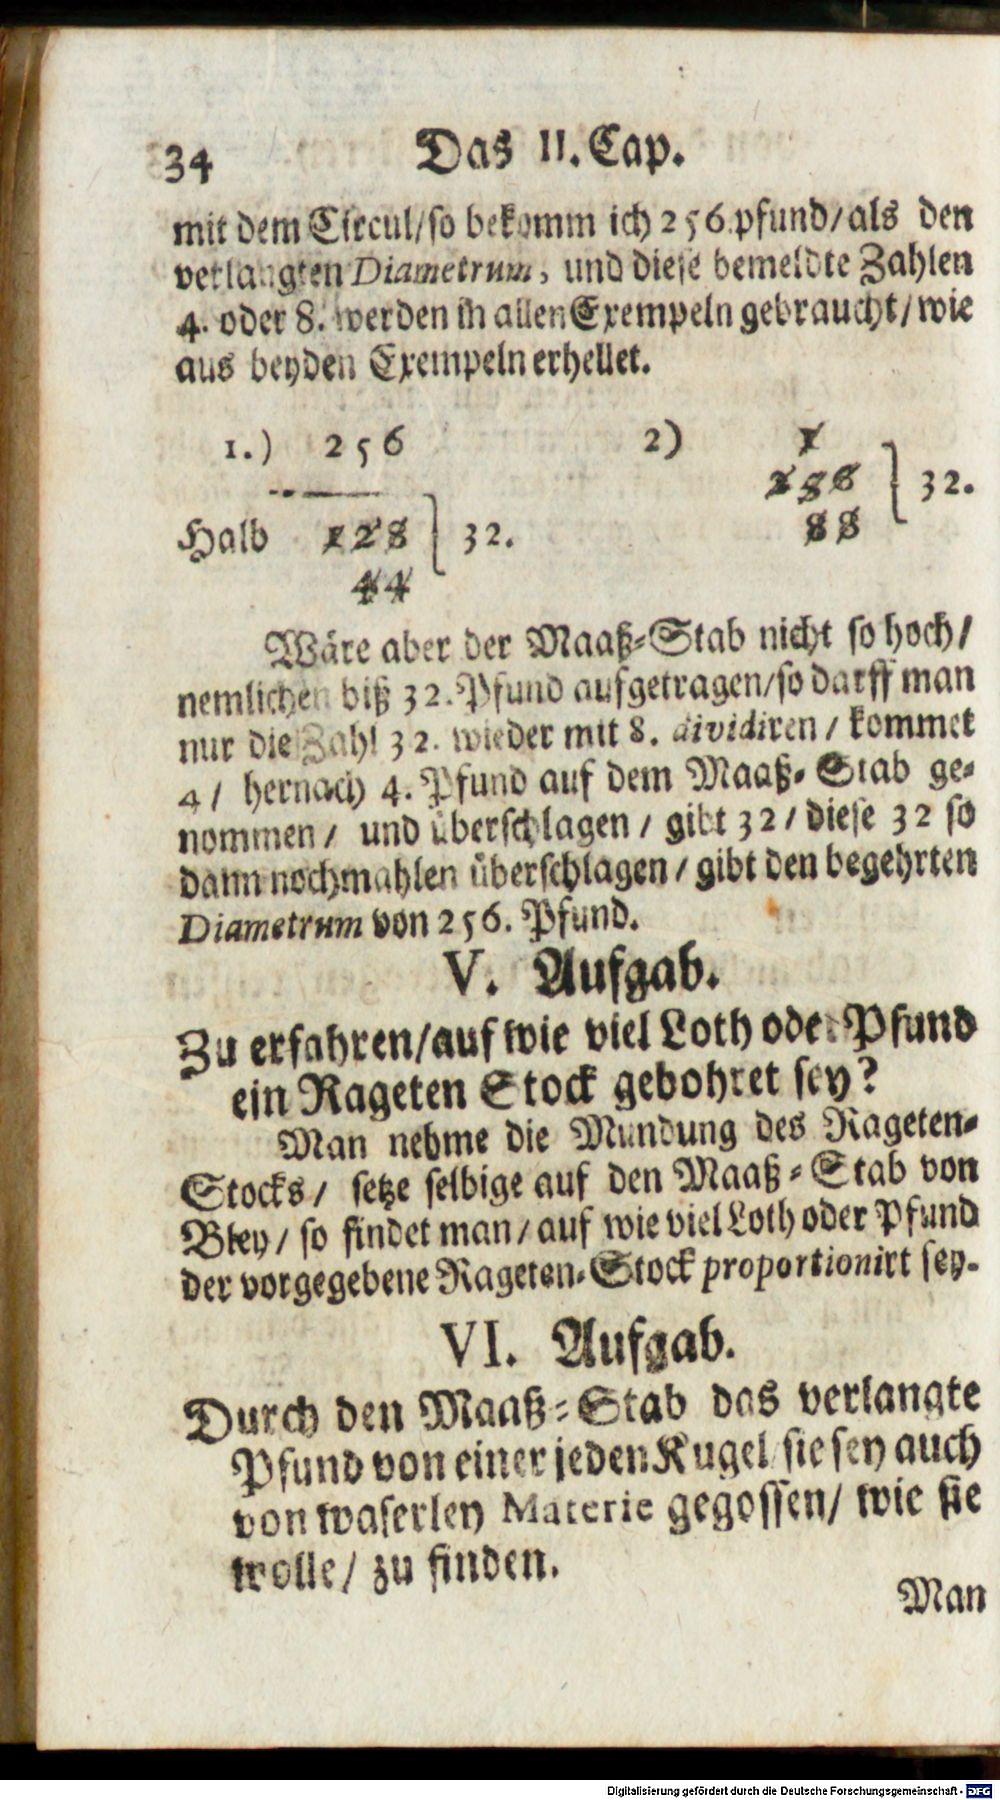 34 Das II. Cap.
mit dem Circul/so bekomm ich 256.pfund/als den
verlangten Diametrum, und diese bemeldte Zahlen
4. oder 8. werden in allen Exempeln gebraucht/wie
aus beyden Exempeln erhellet.
1.) 256 2) 1
256 } 32.
Halb 128 } 32. 88
44
Wäre aber der Maaß-Stab nicht so hoch/
nemlichen biß 32. Pfund aufgetragen/so darff man
nur die Zahl 32. wieder mit 8. dividiren / kommet
4/ hernach 4. Pfund auf dem Maaß-Stab ge-
nommen/ und überschlagen / gibt 32/ diese 32 so
dann nochmahlen überschlagen / gibt den begehrten
Diametrum von 256. Pfund.
V. Aufgab.
Zu erfahren/auf wie viel Loth oder Pfund
ein Rageten Stock gebohret sey?
Man nehme die Mundung des Rageten-
Stocks/ setze selbige auf den Maaß-Stab von
Bley/ so findet man/auf wie viel Loth oder Pfund
der vorgegebene Rageten-Stock proportionirt sey.
VI. Aufgab.
Durch den Maaß-Stab das verlangte
Pfund von einer jeden Kugel/sie sey auch
von waserley Materie gegossen/ wie sie
wolle/ zu finden.
Man
Digitalisierung gefördert durch die Deutsche Forschungsgemeinschaft - DFG